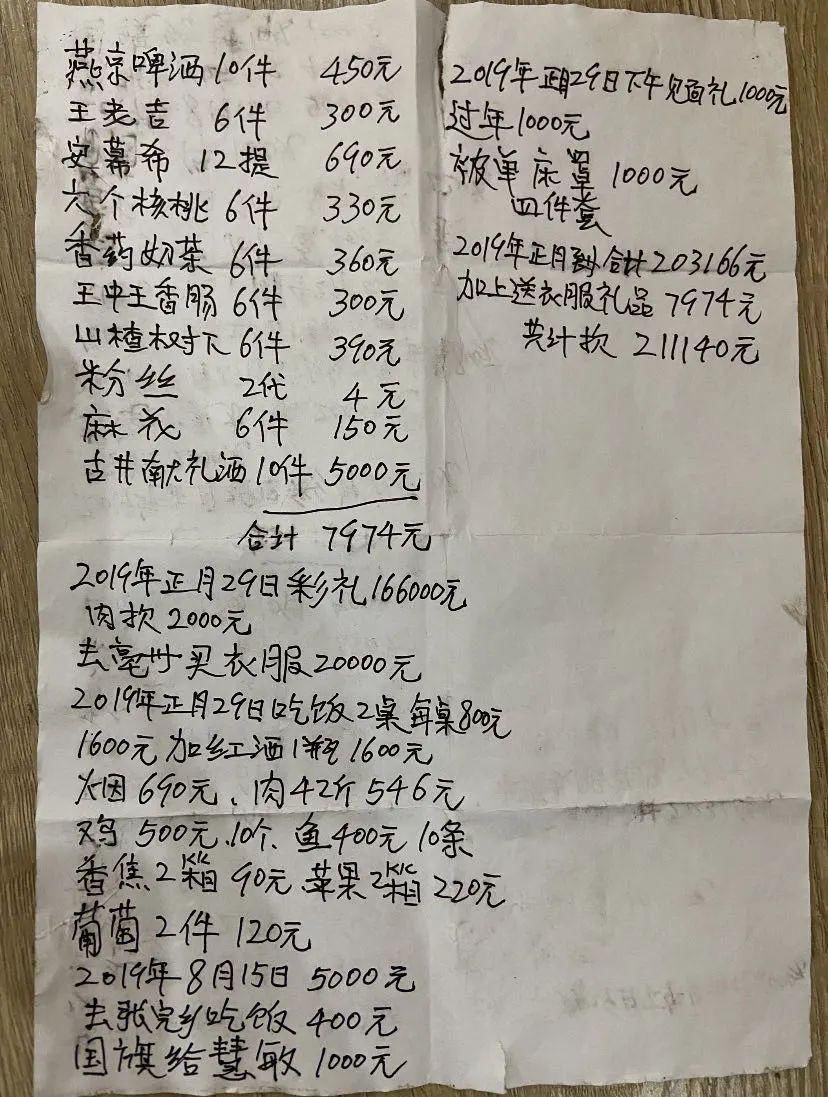 燕京啤酒 10件 450元
王老吉 6件 300元
安慕希 12提 690元
六个核桃 6件 330元
香药奶茶 6件 360元
王中王香肠 6件 300元
山楂树下 6件 390元
粉丝 2代 4元
麻花 6件 150元
古井献礼酒 10件 5000元
合计 7974元
2019年正月29日彩礼166000元
肉款2000元
去亳州买衣服20000元
2019年正月29日吃饭2桌每桌800元
1600元加红酒1瓶1600元
火因690元、肉42斤546元
鸡500元、10个、鱼400元10条
香焦2箱90元苹果2箱220元
葡萄2件120元
2019年8月15日5000元
去张完乡吃饭400元
国旗给慧敏1000元
2019年正月29日下午见面礼1000元
过年1000元
被单床罩1000元
四件套
2019年正月到合计203166元
加上送衣服礼品7974元
共计款211140元